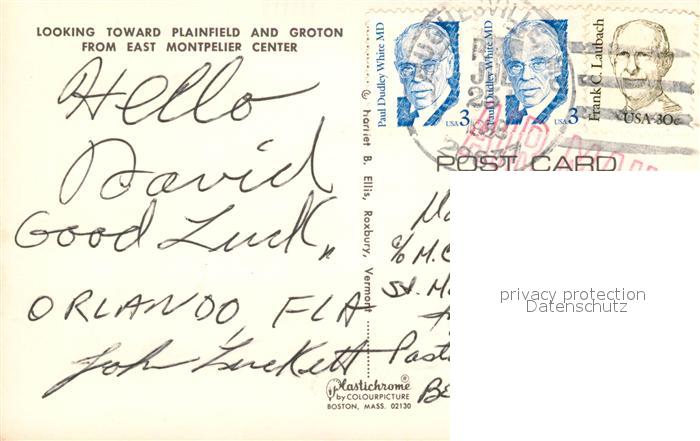 LOOKING TOWARD PLAINFIELD AND GROTON
FROM EAST MONTPELIER CENTER
Hello
David
Good Luck,
ORLANDO, FLA
John Luckett
© Harriet B. Ellis, Roxbury, Vermont
Plastichrome®
by COLOURPICTURE
BOSTON, MASS. 02130
Paul Dudley White MD
USA 3
Paul Dudley White MD
USA 3
Frank C. Laubach
USA 30c
AIR MAIL
POST CARD
c/o M.C
St. M
Past
BE
privacy protection
Datenschutz